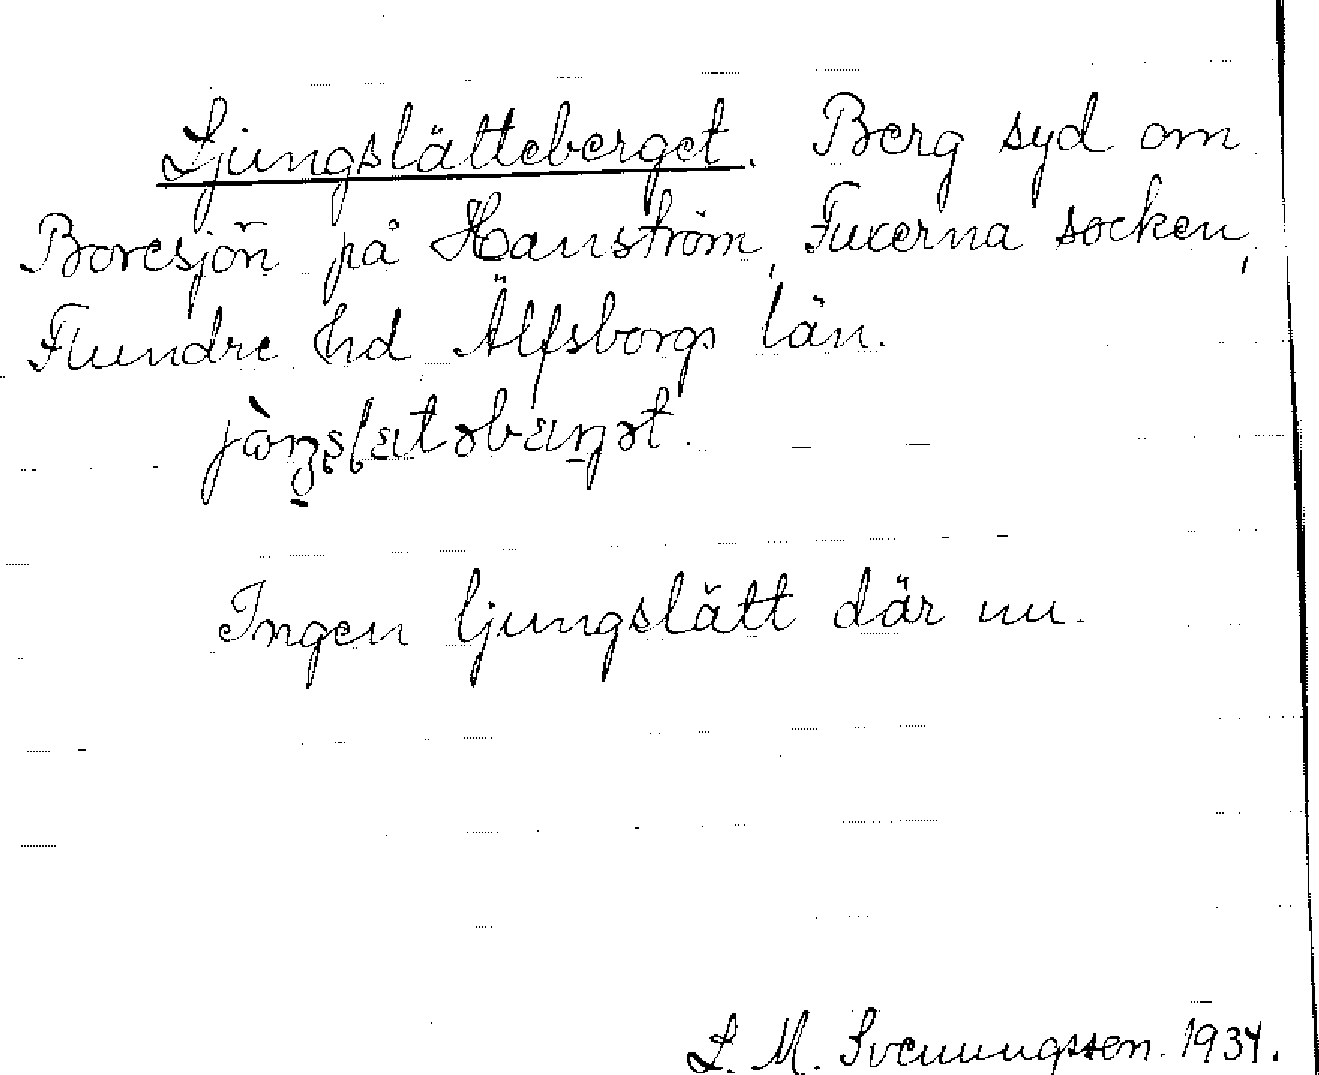 Ljungslätteberget. Berg syd om
Boresjön på Hanström, Fuxerna socken,
Flundre hd Älfsborgs län.
Ingen ljungslätt där nu.
S. M. Svenungsson. 1934.